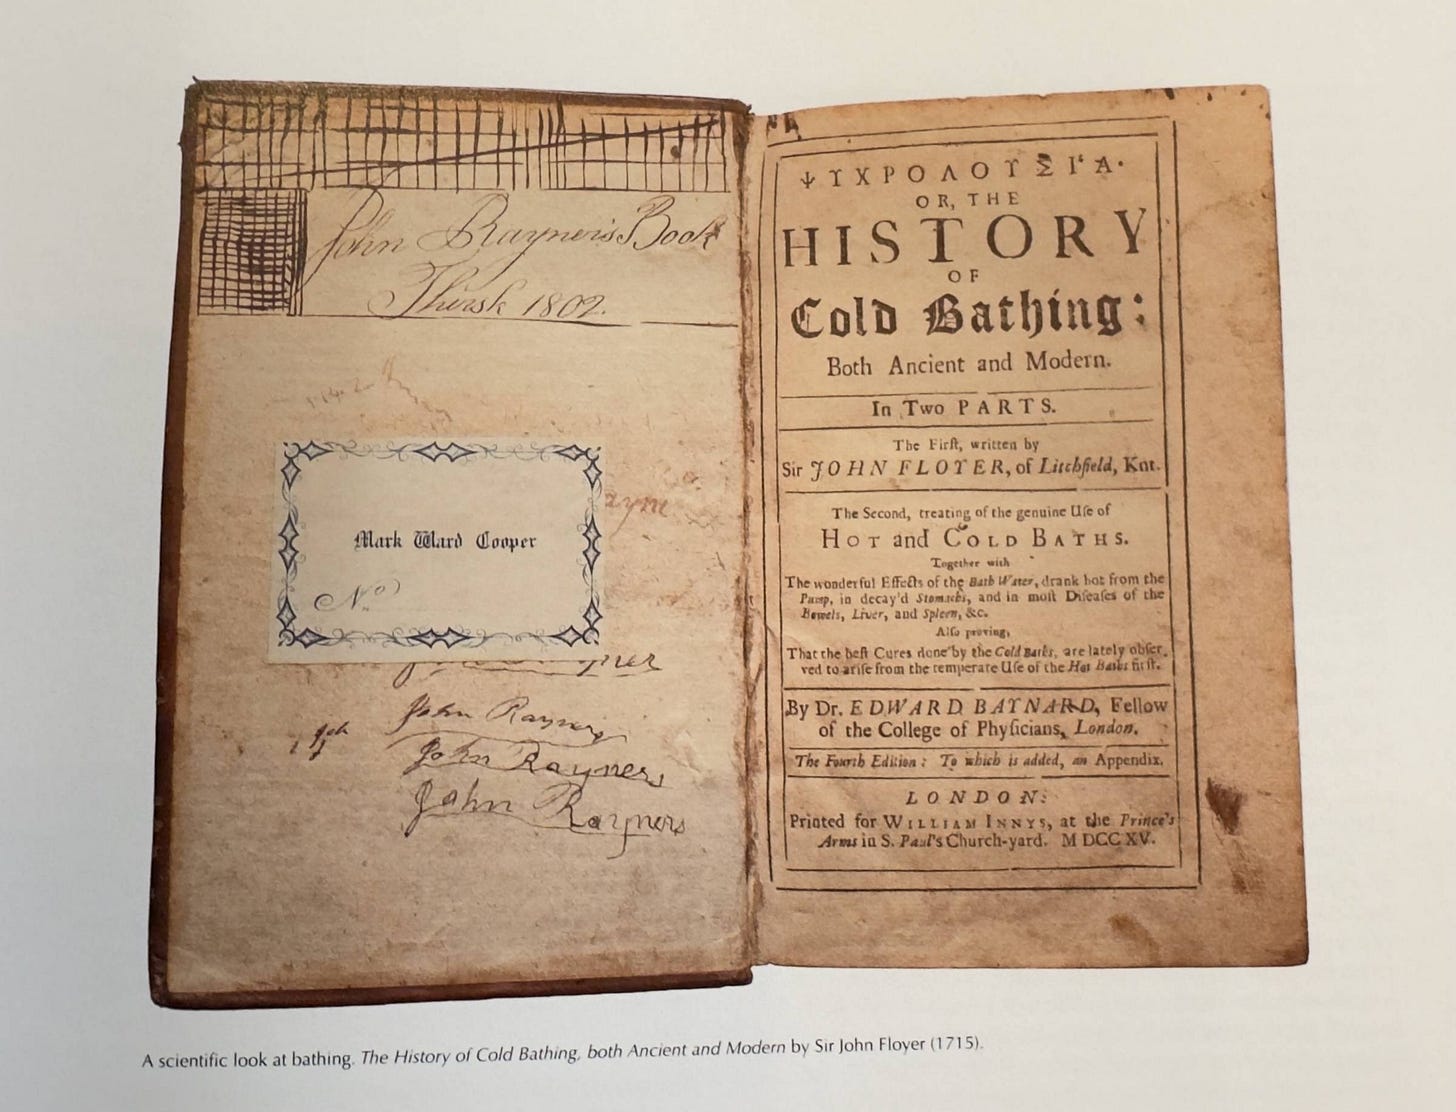 John Rayner's Book
Thirsk 1802.
Mark Ward Cooper
No
John Rayner
John Rayners
John Rayners
ΨΥΧΡΟΛΟΥΣΙ'Α.
OR, THE
HISTORY
OF
Cold Bathing:
Both Ancient and Modern.
In Two PARTS.
The Firſt, written by
Sir JOHN FLOYER, of Litchfield, Knt.
The Second, treating of the genuine Uſe of
HOT and COLD BATHS.
Together with
The wonderful Effects of the Bath Water, drank hot from the
Pump, in decay'd Stomachs, and in moſt Diſeaſes of the
Bowels, Liver, and Spleen, &c.
Alſo proving,
That the beſt Cures done by the Cold Baths, are lately obſer-
ved to ariſe from the temperate Uſe of the Hot Baths firſt.
By Dr. EDWARD BAYNARD, Fellow
of the College of Phyſicians, London.
The Fourth Edition: To which is added, an Appendix.
LONDON:
Printed for WILLIAM INNYS, at the Prince's
Arms in S. Paul's Church-yard. MDCCXV.
A scientific look at bathing. The History of Cold Bathing, both Ancient and Modern by Sir John Floyer (1715).